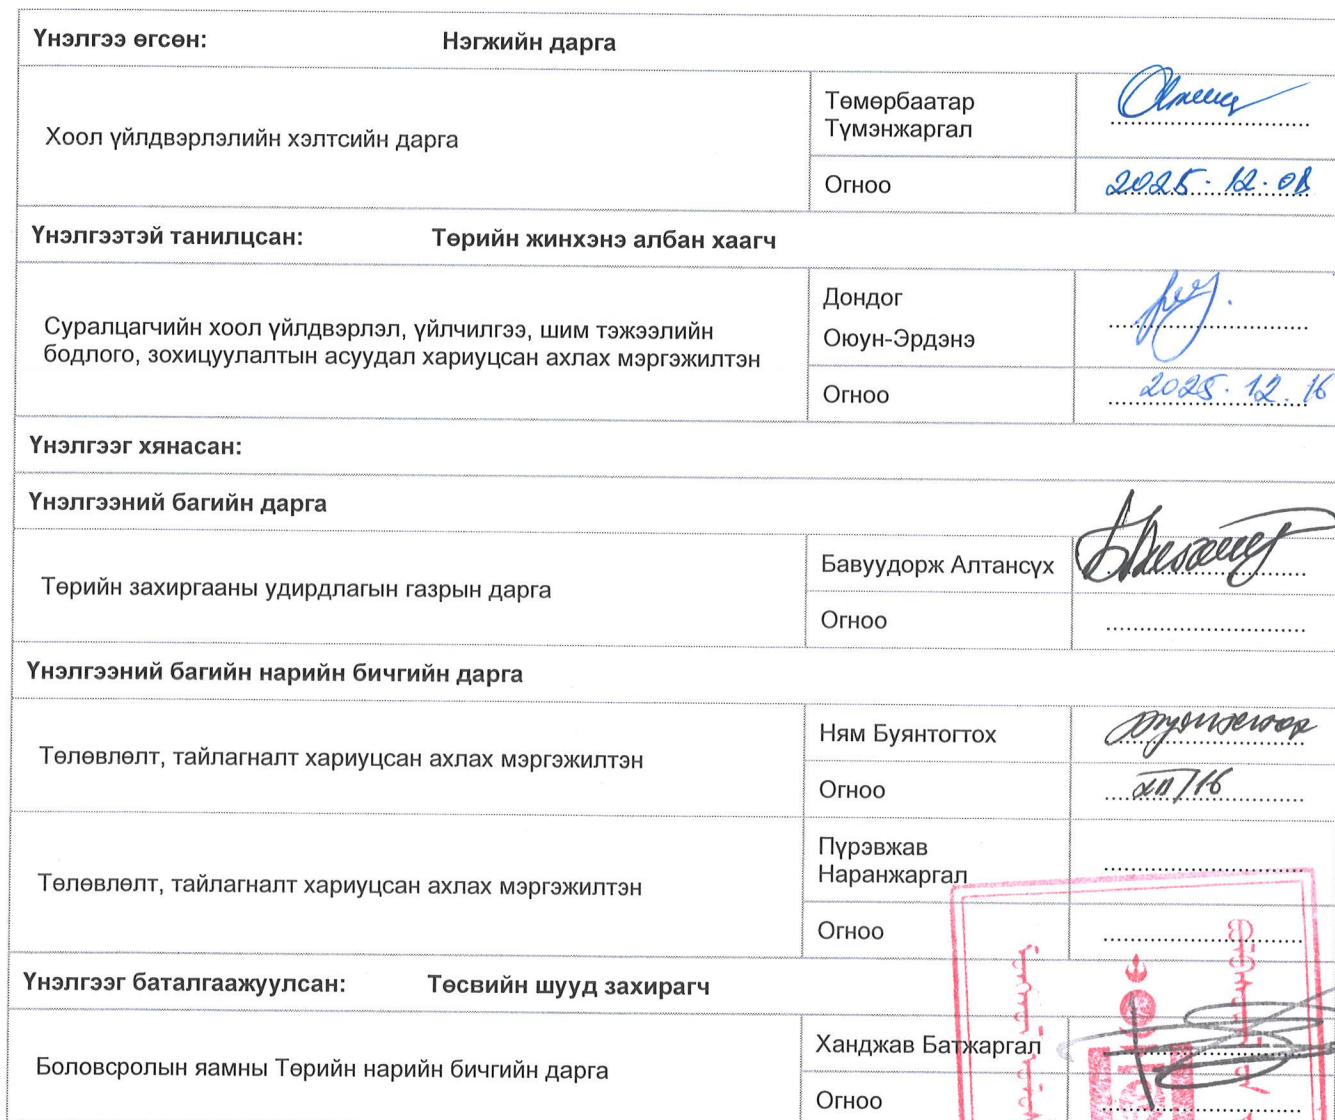 Үнэлгээ өгсөн: Нэгжийн дарга
Хоол үйлдвэрлэлийн хэлтсийн дарга
Төмөрбаатар
Түмэнжаргал
Огноо 2025.12.08
Үнэлгээтэй танилцсан: Төрийн жинхэнэ албан хаагч
Суралцагчийн хоол үйлдвэрлэл, үйлчилгээ, шим тэжээлийн
бодлого, зохицуулалтын асуудал хариуцсан ахлах мэргэжилтэн
Дондог
Оюун-Эрдэнэ
Огноо 2025.12.16
Үнэлгээг хянасан:
Үнэлгээний багийн дарга
Төрийн захиргааны удирдлагын газрын дарга
Бавуудорж Алтансүх
Огноо
Үнэлгээний багийн нарийн бичгийн дарга
Төлөвлөлт, тайлагналт хариуцсан ахлах мэргэжилтэн
Ням Буянтогтох
Огноо XII/16
Төлөвлөлт, тайлагналт хариуцсан ахлах мэргэжилтэн
Пүрэвжав
Наранжаргал
Огноо
Үнэлгээг баталгаажуулсан: Төсвийн шууд захирагч
Боловсролын яамны Төрийн нарийн бичгийн дарга
Ханджав Батжаргал
Огноо